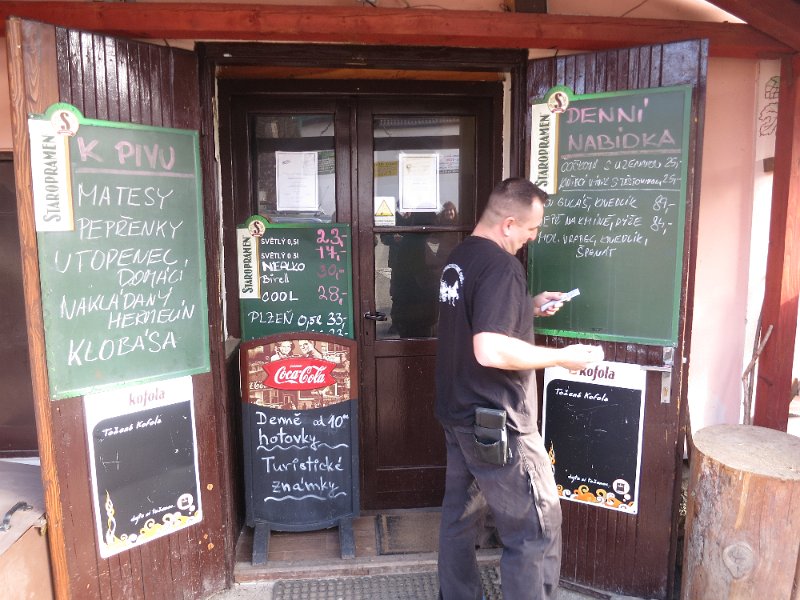 STAROPRAMEN
K PIVU
MATESY
PEPŘENKY
UTOPENEC,
DOMÁCÍ
NAKLÁDANÝ
HERMELÍN
KLOBÁSA
kofola
Točená Kofola
STAROPRAMEN
SVĚTLÝ 0,5l 23,-
SVĚTLÝ 0,3l 17,-
NEALKO 30,-
Birell
COOL 28,-
PLZEŇ 0,5l 33,-
Coca-Cola
Denně od 10°°
hotovky
Turistické
známky
STAROPRAMEN
DENNÍ
NABÍDKA
S UZENINOU, 25,-
GULÁŠ, KNEDLÍK 89,-
NA KMÍNĚ, RÝŽE 84,-
MOR. VRABEC, KNEDLÍK,
ŠPENÁT
kofola
Točená Kofola